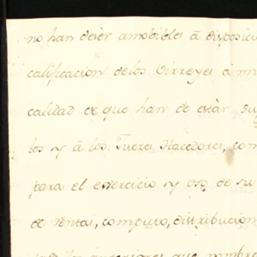 no han deser amobibles á disposici
calificacion delos Virreyes á
calidad de que han de estár su
los y á los Jueces Hacedores, com
para el exercicio y uso de su
de rentas, computo, distribucion
que nombra